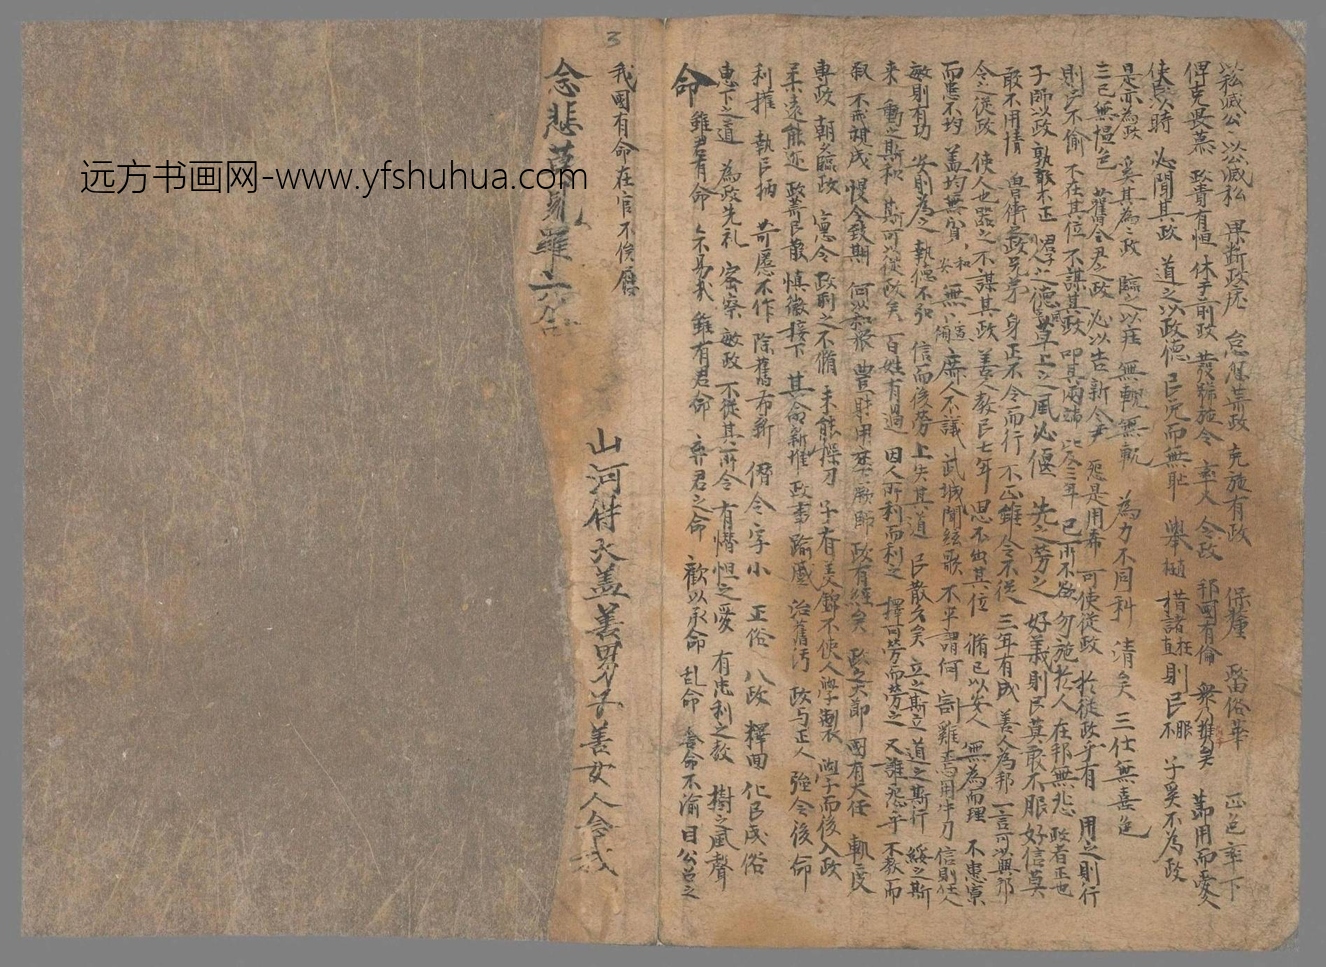 以私滅公 以公滅私 果斷政 怠忽荒政 克施有政 保釐 俗革 正色率下
俾克畏慕 政貴有恒 休于前政 發號施令 率人 令政 邦國有倫 衆人推矣 節用而愛人
使以時 必聞其政 道之以政德 民免而無恥 舉 措諸枉直則民不服 子奚不為政
是亦為政 奚其為為政 臨之以莊 無輗無軏 為力不同科 清矣 三仕無喜色
三已無慍色 舊令尹之政 必以告新令尹 怨是用希 可使從政 於從政乎有 用之則行
則民不偷 不在其位不謀其政 叩其兩端 比及三年 己所不欲 勿施於人 在邦無怨 政者正也
子帥以政 孰敢不正 君子之德風 草上之風必偃 先之勞之 好義則民莫敢不服 好信莫
敢不用情 魯衛之政兄弟 身正不令而行 不正雖令不從 三年有成 善人為邦 一言可以興邦
令之從政 使人也器之 不謀其政 善人教民七年 思不出其位 脩己以安人 無為而理 不患寡
而患不均 盖均無貧 和無寡 安無傾 庶人不議 武城聞絃歌 不平謂何 割雞焉用牛刀 信則任人
敏則有功 安則為之 執德不弘 信而後勞 上失其道 民散久矣 立之斯立 道之斯行 綏之斯
來 動之斯和 斯可以從政矣 百姓有過 因人所利而利之 擇可勞而勞之 又誰怨乎 不教而
不戒視成 慢令致期 何以和衆 豊財用 政有經矣 政之大節 國有大任 執
專政 朝夕臨政 寬令 政刑之不脩 未能操刀 子有美錦不使人學製 學而後入政
柔遠能迩 政荒民散 慎徽接下 其命新 政事踰 治舊汚 政与正人 強令後命
利權 執民柄 苛慝不作 除舊布新 僭令字小 正俗 八政 擇回 化民成俗
惠下之道 為政先礼 察 敏政 不從其所令 有憯怛之愛 有忠利之教 樹之風聲
命 雖君有命 不易哉 雖有君命 弃君之命 歡以承命 乱命 舍命不渝 自公召之
我國有命在官不俟屨
山河符大盖善男子善女人令戒
念悲萬身羅
3
远方书画网-www.yfshuhua.com